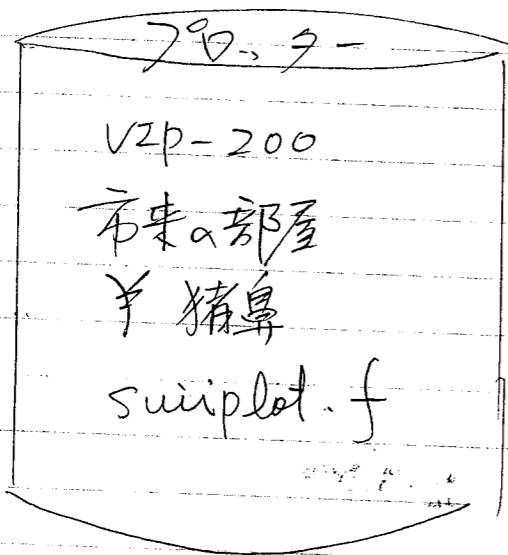 プロッター
VIP-200
市来の部屋
¥ 猪鼻
suiiplot.f